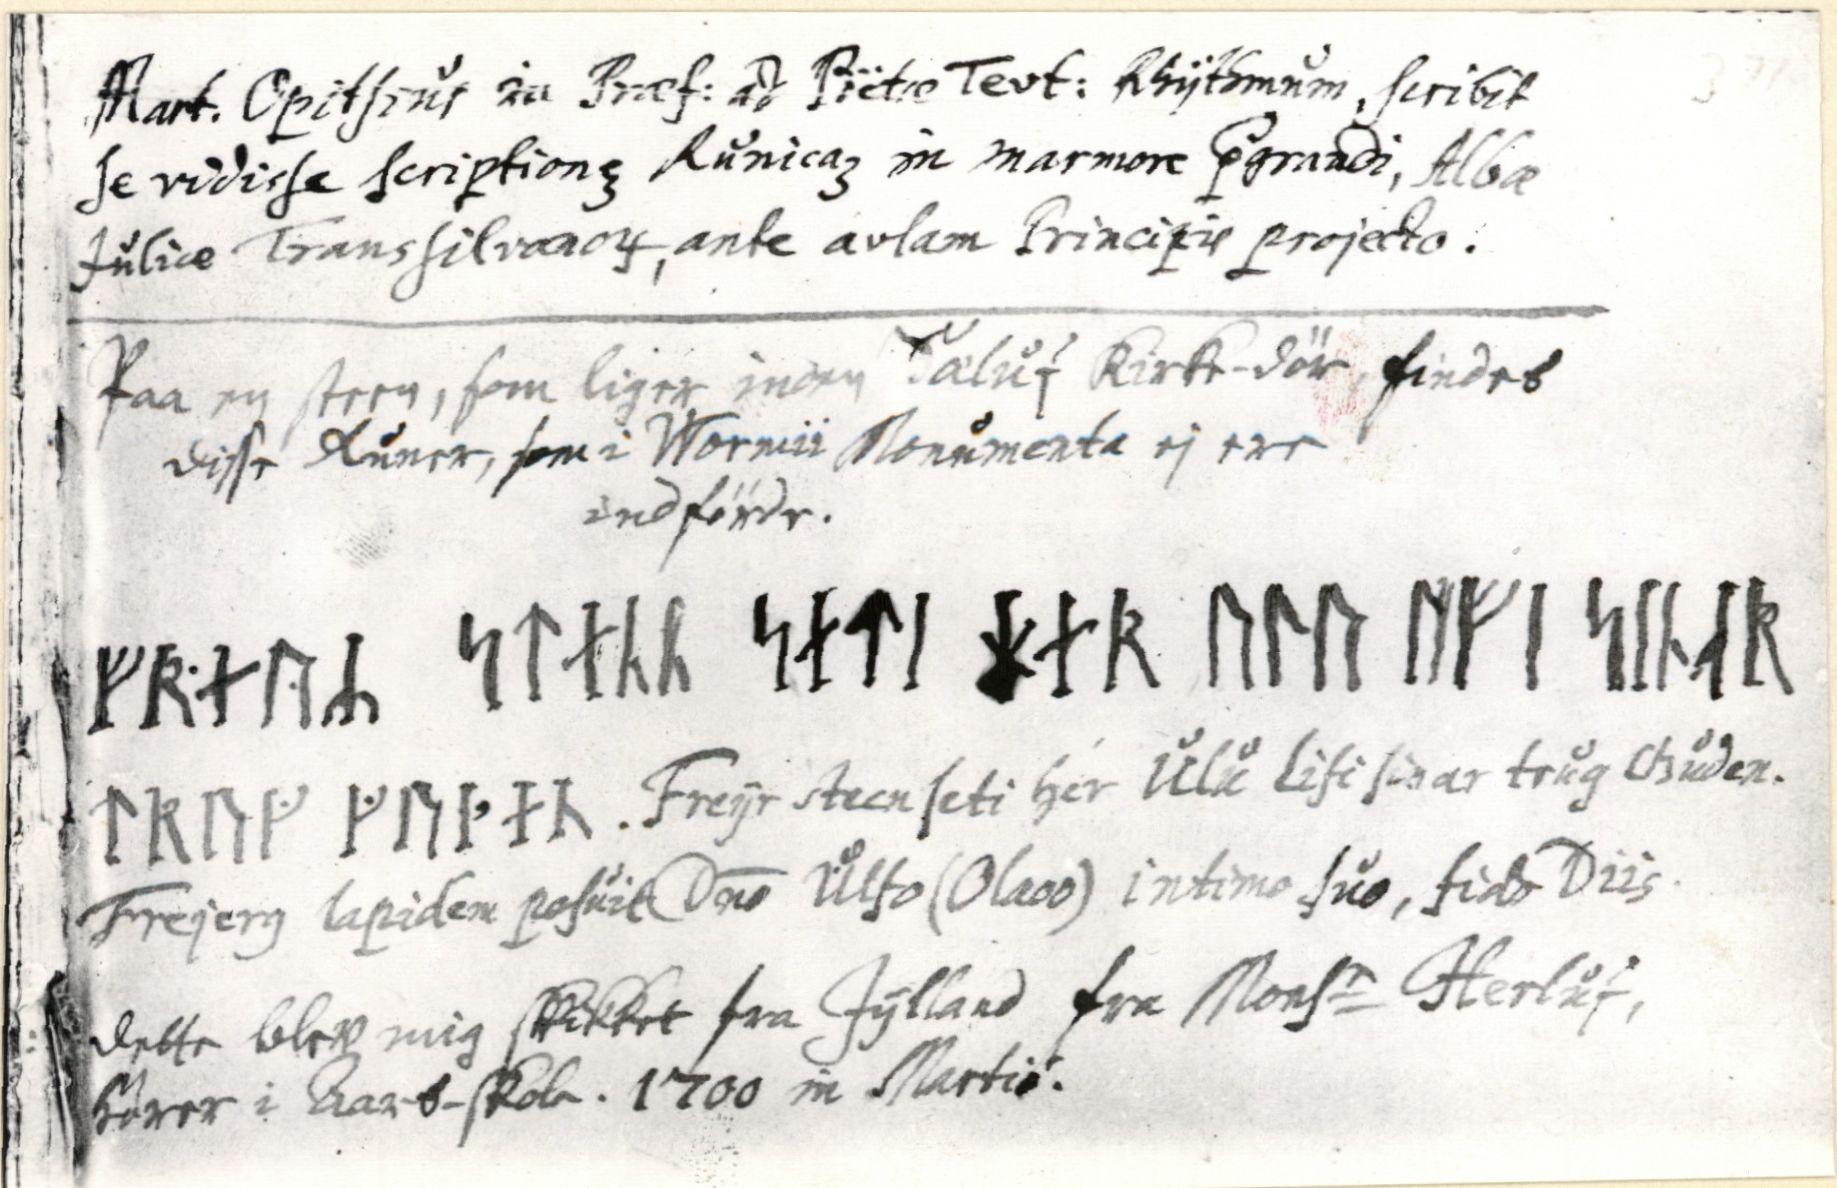 Mart. Opitsius in Præf: ad Rÿtæ Tevt: Rhÿthmum, scribit
se vidisse scriptionꝫ Runicaꝫ in marmore p̄grandi, Albæ
Juliæ Transsilvanoꝝ, ante avlam Principis projecto.
Paa en steen, som liger inden Taluf Kirke-dör, findes
disse Runer, som i Wormii Monumenta ej ere
indförde.
ᚠᚱᛅᚢ ᛋᛏᛅᚾ ᛋᛅᛏᛁ ᚼᛅᚱ ᚢᛚᚢ ᚠᛁ ᛋᛁ ᚱ
ᛏᚱᚢ ᚢ. Freÿr steen seti hér Ulu Lifi sinar trug Guden.
Frejerg lapidem posuit Dn̄o Ulfo (Olaoo) intimo suo, fido Diis.
dette blev mig skikket fra Jÿlland fra Monsr Herluf,
hörer i Aars-skole. 1700 in Martio.